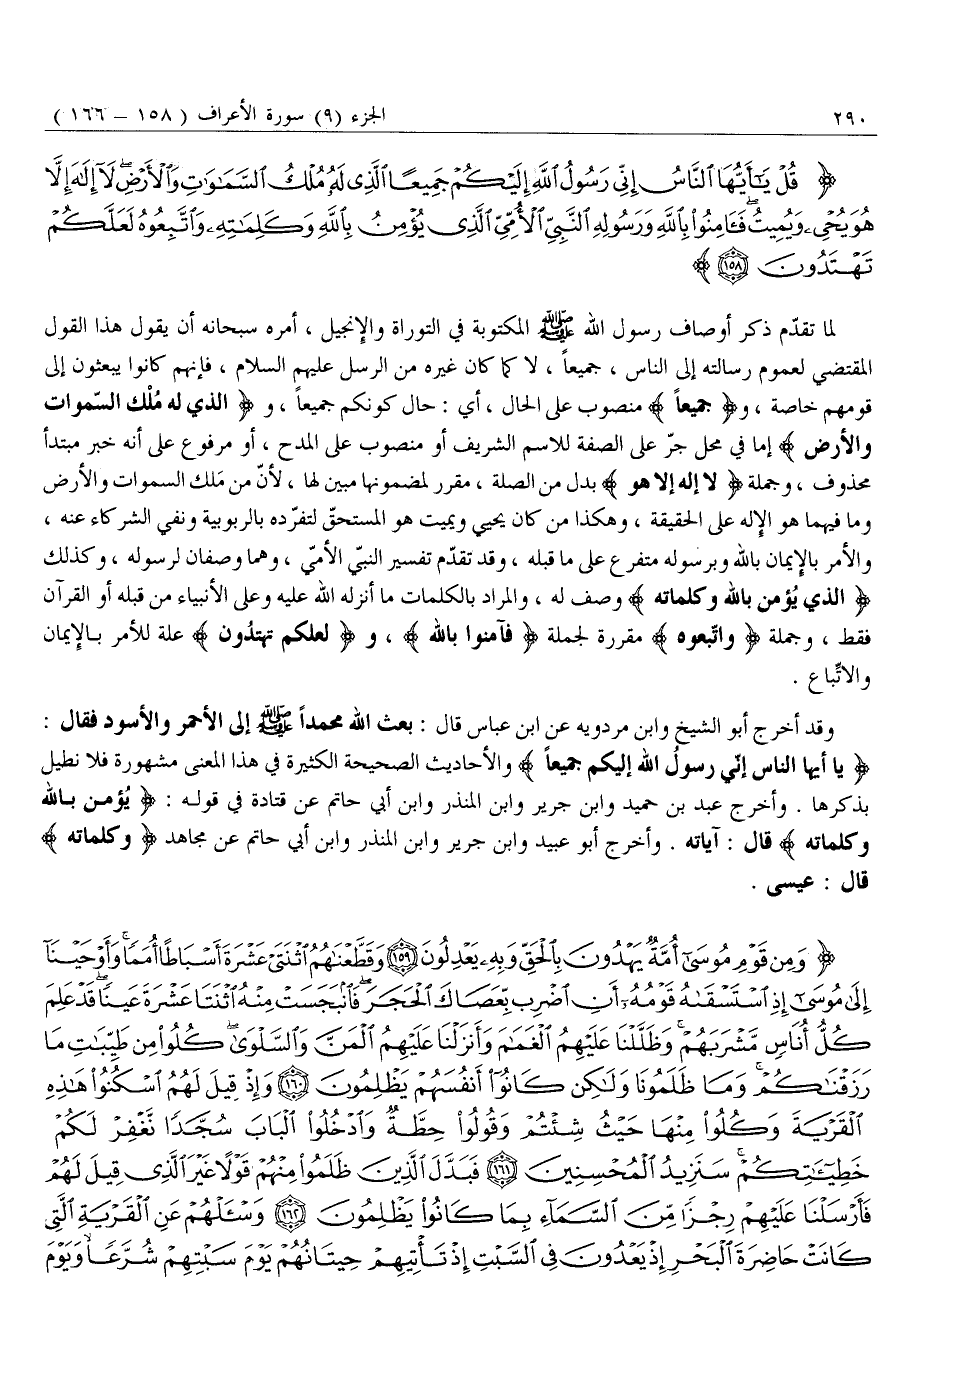 ٢٩٠ الجزء (٩) سورة الأعراف ( ١٥٨ - ١٦٦ )
﴿ قُلْ يَٰٓأَيُّهَا ٱلنَّاسُ إِنِّى رَسُولُ ٱللَّهِ إِلَيْكُمْ جَمِيعًا ٱلَّذِى لَهُۥ مُلْكُ ٱلسَّمَٰوَٰتِ وَٱلْأَرْضِ ۖ لَآ إِلَٰهَ إِلَّا
هُوَ يُحْىِۦ وَيُمِيتُ ۖ فَـَٔامِنُوا۟ بِٱللَّهِ وَرَسُولِهِ ٱلنَّبِىِّ ٱلْأُمِّىِّ ٱلَّذِى يُؤْمِنُ بِٱللَّهِ وَكَلِمَٰتِهِۦ وَٱتَّبِعُوهُ لَعَلَّكُمْ
تَهْتَدُونَ ١٥٨ ﴾
لما تقدّم ذكر أوصاف رسول الله ﷺ المكتوبة في التوراة والإنجيل ، أمره سبحانه أن يقول هذا القول
المقتضي لعموم رسالته إلى الناس ، جميعاً ، لا كما كان غيره من الرسل عليهم السلام ، فإنهم كانوا يبعثون إلى
قومهم خاصة ، و﴿ جميعاً ﴾ منصوب على الحال ، أي : حال كونكم جميعاً ، و ﴿ الذي له مُلْك السّموات
والأرض ﴾ إما في محل جرّ على الصفة للاسم الشريف أو منصوب على المدح ، أو مرفوع على أنه خبر مبتدأ
محذوف ، وجملة ﴿ لا إله إلا هو ﴾ بدل من الصلة ، مقرر لمضمونها مبين لها ، لأنّ من مَلك السموات والأرض
وما فيهما هو الإله على الحقيقة ، وهكذا من كان يحيي ويميت هو المستحقّ لتفرّده بالربوبية ونفي الشركاء عنه ،
والأمر بالإيمان بالله وبرسوله متفرع على ما قبله ، وقد تقدّم تفسير النبيّ الأميّ ، وهما وصفان لرسوله ، وكذلك
﴿ الذي يُؤمن بالله وكلماته ﴾ وصف له ، والمراد بالكلمات ما أنزله الله عليه وعلى الأنبياء من قبله أو القرآن
فقط ، وجملة ﴿ واتّبعوه ﴾ مقررة لجملة ﴿ فآمنوا بالله ﴾ ، و ﴿ لعلكم تهتدُون ﴾ علة للأمر بالإيمان
والاتّباع .
وقد أخرج أبو الشيخ وابن مردويه عن ابن عباس قال : بعث الله محمداً ﷺ إلى الأحمر والأسود فقال :
﴿ يا أيها الناس إنّي رسولُ الله إليكم جميعاً ﴾ والأحاديث الصحيحة الكثيرة في هذا المعنى مشهورة فلا نطيل
بذكرها . وأخرج عبد بن حميد وابن جرير وابن المنذر وابن أبي حاتم عن قتادة في قوله : ﴿ يُؤمن بالله
وكلماته ﴾ قال : آياته . وأخرج أبو عبيد وابن جرير وابن المنذر وابن أبي حاتم عن مجاهد ﴿ وكلماته ﴾
قال : عيسى .
﴿ وَمِن قَوْمِ مُوسَىٰٓ أُمَّةٌ يَهْدُونَ بِٱلْحَقِّ وَبِهِۦ يَعْدِلُونَ ١٥٩ وَقَطَّعْنَٰهُمُ ٱثْنَتَىْ عَشْرَةَ أَسْبَاطًا أُمَمًا ۚ وَأَوْحَيْنَآ
إِلَىٰ مُوسَىٰٓ إِذِ ٱسْتَسْقَىٰهُ قَوْمُهُۥٓ أَنِ ٱضْرِب بِّعَصَاكَ ٱلْحَجَرَ ۖ فَٱنۢبَجَسَتْ مِنْهُ ٱثْنَتَا عَشْرَةَ عَيْنًا ۖ قَدْ عَلِمَ
كُلُّ أُنَاسٍ مَّشْرَبَهُمْ ۚ وَظَلَّلْنَا عَلَيْهِمُ ٱلْغَمَٰمَ وَأَنزَلْنَا عَلَيْهِمُ ٱلْمَنَّ وَٱلسَّلْوَىٰ ۖ كُلُوا۟ مِن طَيِّبَٰتِ مَا
رَزَقْنَٰكُمْ ۚ وَمَا ظَلَمُونَا وَلَٰكِن كَانُوٓا۟ أَنفُسَهُمْ يَظْلِمُونَ ١٦٠ وَإِذْ قِيلَ لَهُمُ ٱسْكُنُوا۟ هَٰذِهِ
ٱلْقَرْيَةَ وَكُلُوا۟ مِنْهَا حَيْثُ شِئْتُمْ وَقُولُوا۟ حِطَّةٌ وَٱدْخُلُوا۟ ٱلْبَابَ سُجَّدًا نَّغْفِرْ لَكُمْ
خَطِيٓـَٰٔتِكُمْ ۚ سَنَزِيدُ ٱلْمُحْسِنِينَ ١٦١ فَبَدَّلَ ٱلَّذِينَ ظَلَمُوا۟ مِنْهُمْ قَوْلًا غَيْرَ ٱلَّذِى قِيلَ لَهُمْ
فَأَرْسَلْنَا عَلَيْهِمْ رِجْزًا مِّنَ ٱلسَّمَآءِ بِمَا كَانُوا۟ يَظْلِمُونَ ١٦٢ وَسْـَٔلْهُمْ عَنِ ٱلْقَرْيَةِ ٱلَّتِى
كَانَتْ حَاضِرَةَ ٱلْبَحْرِ إِذْ يَعْدُونَ فِى ٱلسَّبْتِ إِذْ تَأْتِيهِمْ حِيتَانُهُمْ يَوْمَ سَبْتِهِمْ شُرَّعًا وَيَوْمَ